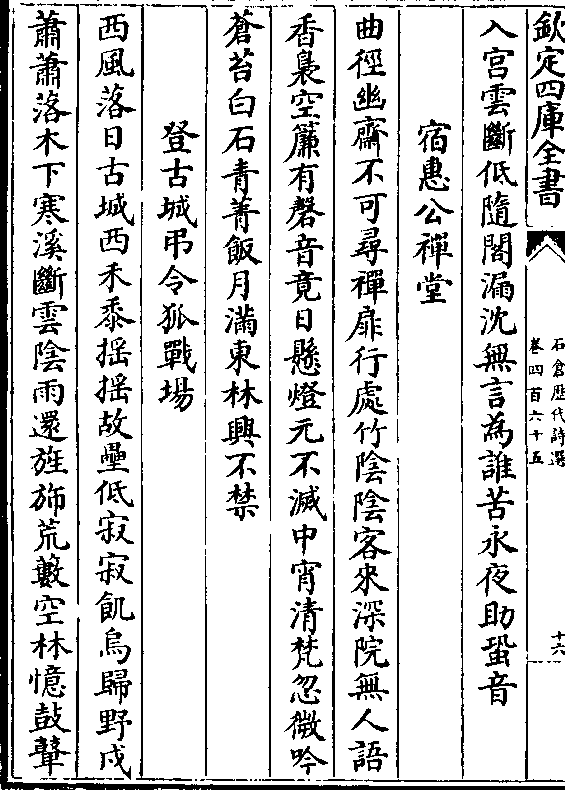 欽定四庫全書
石倉歴代詩選
卷四百六十五
十六
入宫雲斷低隨閣漏沈無言為誰苦永夜助蛩音
宿惠公禪堂
曲徑幽齋不可尋禪扉行處竹陰陰客來深院無人語
香裊空簾有磬音竟日懸燈元不滅中宵清梵忽微吟
蒼苔白石青菁飯月滿東林興不禁
登古城弔令狐戰場
西風落日古城西禾黍揺揺故壘低寂寂飢烏歸野戍
蕭蕭落木下寒溪斷雲陰雨還旌斾荒藪空林憶鼓鼙